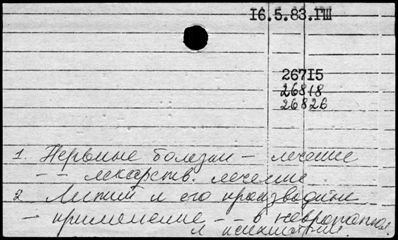 16.5.83.ГШ
26715
26818
26826
1. Нервные болезни – лечение
– – лекарств. лечение
2 Литий и его производные
– применение – – в невропатол.
и психиатрии